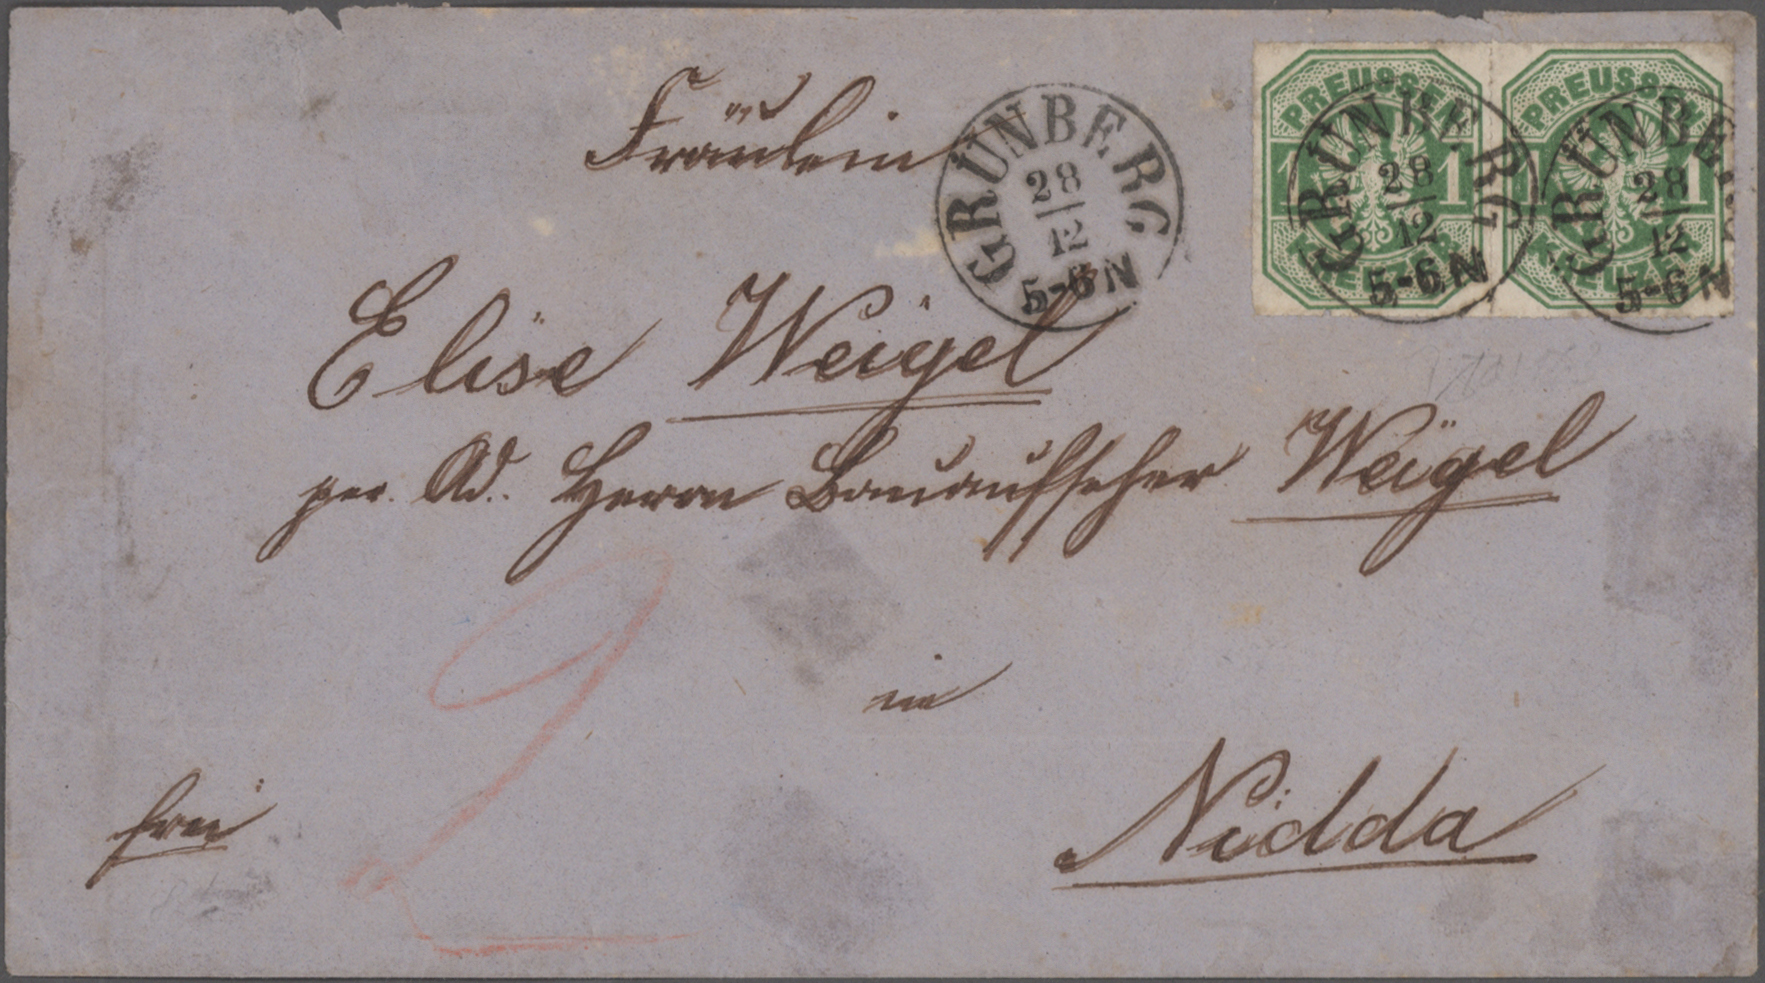 Fräulein
GRÜNBERG
28
12
5-6 N
PREUSSEN
1 1
KREUZER
GRÜNBERG
28
12
5-6 N
PREUSSEN
1 1
KREUZER
GRÜNBE
28
12
5-6 N
Elise Weigel
per. Ad. Herrn Bauaufseher Weigel
2
in
frei
Nidda